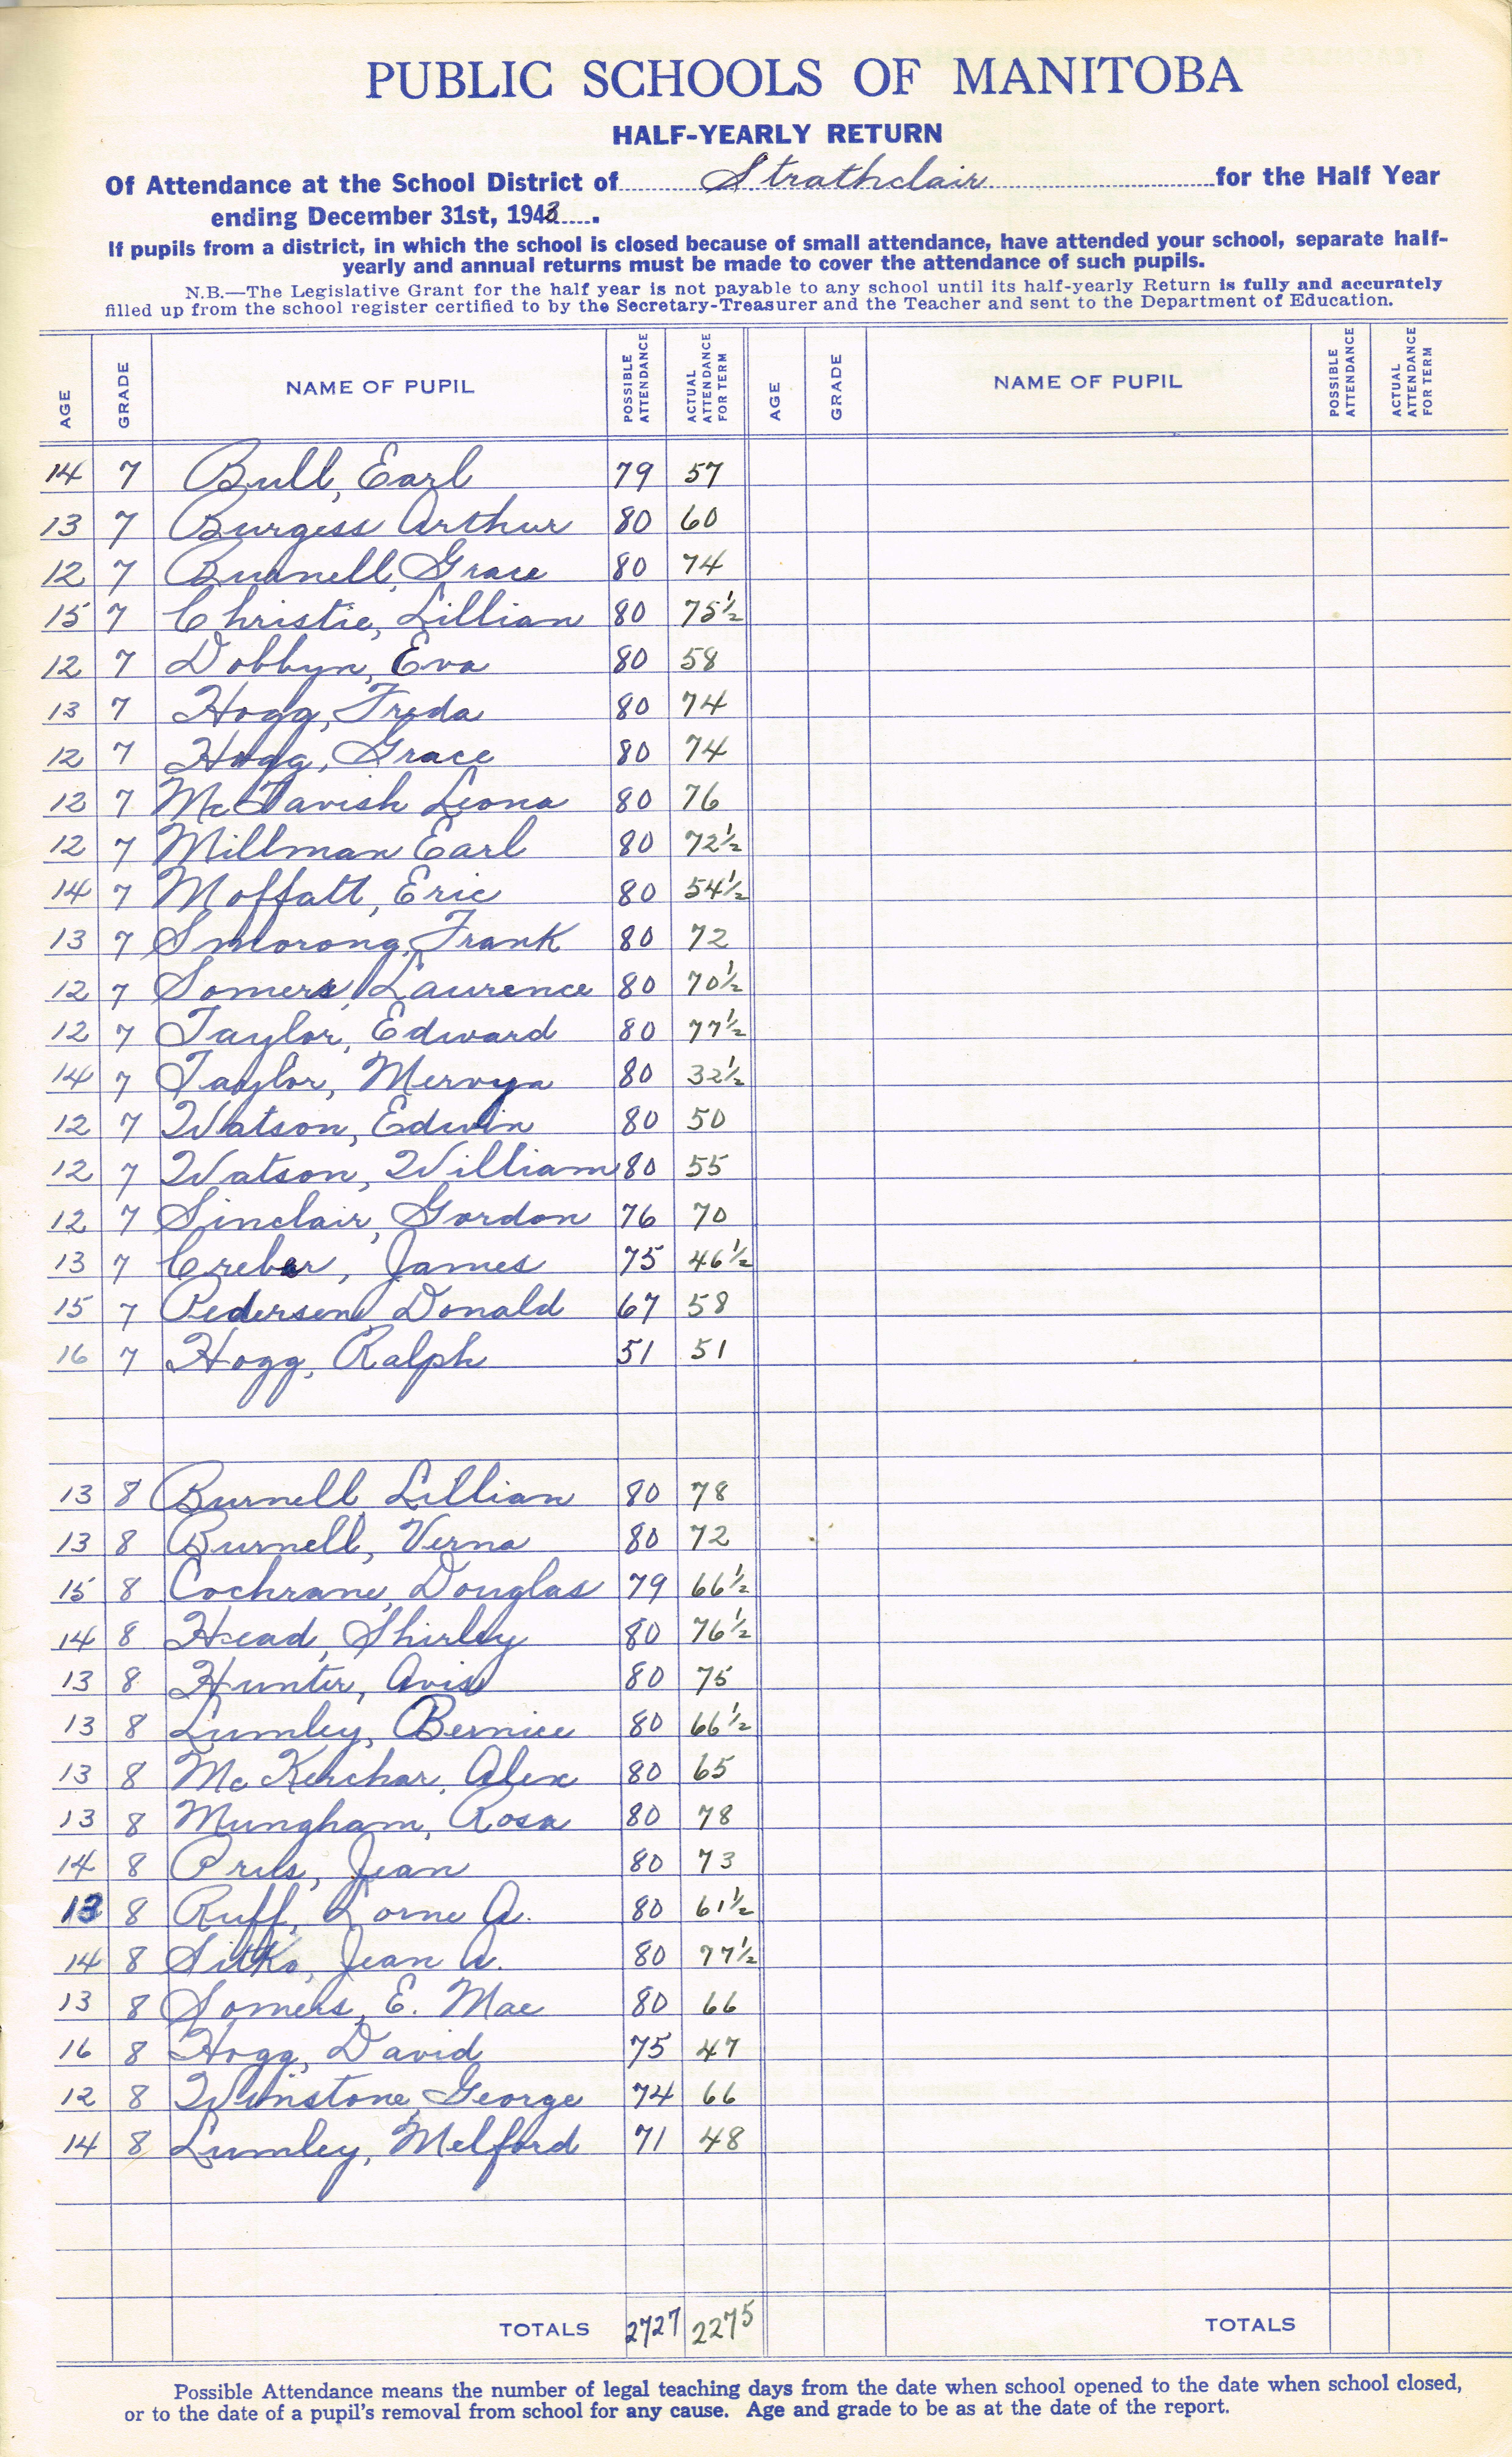 PUBLIC SCHOOLS OF MANITOBA
HALF-YEARLY RETURN
Of Attendance at the School District of Strathclair for the Half Year
ending December 31st, 1943.
If pupils from a district, in which the school is closed because of small attendance, have attended your school, separate half-
yearly and annual returns must be made to cover the attendance of such pupils.
N.B.—The Legislative Grant for the half year is not payable to any school until its half-yearly Return is fully and accurately
filled up from the school register certified to by the Secretary-Treasurer and the Teacher and sent to the Department of Education.
AGE GRADE NAME OF PUPIL POSSIBLE ATTENDANCE ACTUAL ATTENDANCE FOR TERM AGE GRADE NAME OF PUPIL POSSIBLE ATTENDANCE ACTUAL ATTENDANCE FOR TERM
14 7 Bull, Earl 79 57
13 7 Burgess Arthur 80 60
12 7 Burnell, Grace 80 74
15 7 Christie, Lillian 80 75½
12 7 Dobbyn, Eva 80 58
13 7 Hogg, Freda 80 74
12 7 Hogg, Grace 80 74
12 7 McTavish Leona 80 76
12 7 Millman Earl 80 72½
14 7 Moffatt, Eric 80 54½
13 7 Smorong, Frank 80 72
12 7 Somers, Laurence 80 70½
12 7 Taylor, Edward 80 77½
14 7 Taylor, Mervyn 80 32½
12 7 Watson, Edwin 80 50
12 7 Watson, William 80 55
12 7 Sinclair, Gordon 76 70
13 7 Creber, James 75 46½
15 7 Pedersen, Donald 67 58
16 7 Hogg, Ralph 51 51
13 8 Burnell, Lillian 80 78
13 8 Burnell, Verna 80 72
15 8 Cochrane, Douglas 79 66½
14 8 Head, Shirley 80 76½
13 8 Hunter, Avis 80 75
13 8 Lumley, Bernice 80 66½
13 8 McKerchar, Alex 80 65
13 8 Mungham, Rosa 80 78
14 8 Prus, Jean 80 73
13 8 Ruff, Lorne A. 80 61½
14 8 Sitko, Jean A. 80 77½
13 8 Somers, E. Mae 80 66
16 8 Hogg, David 75 47
12 8 Winstone, George 74 66
14 8 Lumley, Melford 71 48
TOTALS 2727 2275 TOTALS
Possible Attendance means the number of legal teaching days from the date when school opened to the date when school closed,
or to the date of a pupil's removal from school for any cause. Age and grade to be as at the date of the report.